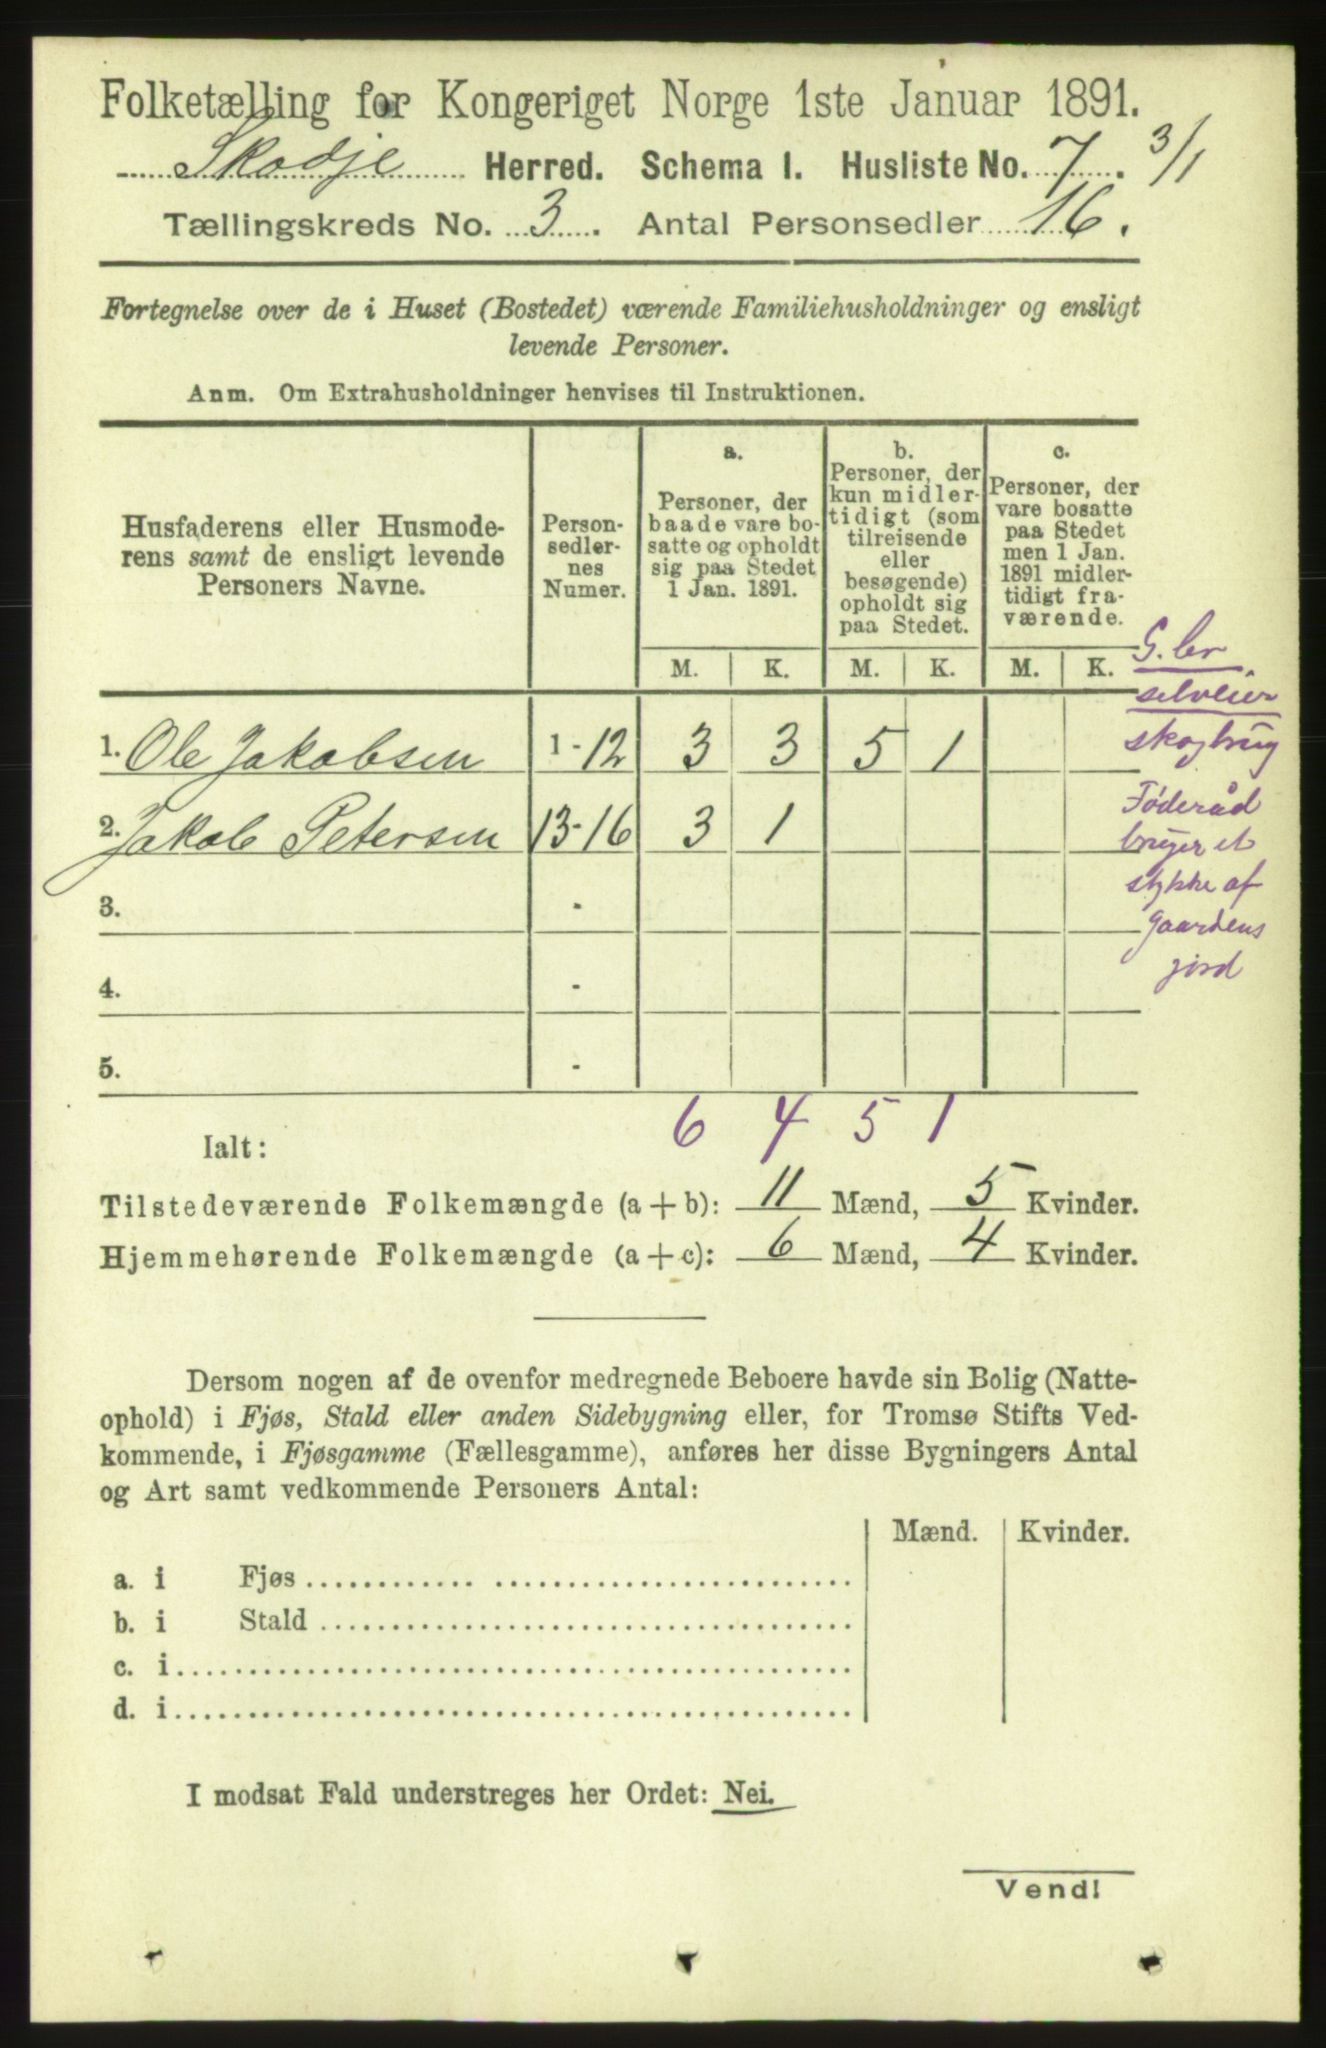 Folketælling for Kongeriget Norge 1ste Januar 1891.
Skodje Herred. Schema I. Husliste No. 7. 3/1
Tællingskreds No. 3. Antal Personsedler 16.
Fortegnelse over de i Huset (Bostedet) værende Familiehusholdninger og ensligt
levende Personer.
Anm. Om Extrahusholdninger henvises til Instruktionen.
Husfaderens eller Husmode-
rens samt de ensligt levende
Personers Navne.
Person-
sedler-
nes
Numer.
a.
Personer, der
baade vare bo-
satte og opholdt
sig paa Stedet
1 Jan. 1891.
b.
Personer, der
kun midler-
tidigt (som
tilreisende
eller
besøgende)
opholdt sig
paa Stedet.
c.
Personer, der
vare bosatte
paa Stedet
men 1 Jan.
1891 midler-
tidigt fra-
værende.
M. K. M. K. M. K.
G. br
selveier
skogbrug
1. Ole Jakobsen 1-12 3 3 5 1
2. Jakob Petersen 13-16 3 1
Føderåd
bruger et
stykke af
Gaardens
jord
3. -
4. -
5. -
6 4 5 1
Ialt:
Tilstedeværende Folkemængde (a+b): 11 Mænd, 5 Kvinder.
Hjemmehørende Folkemængde (a+c): 6 Mænd, 4 Kvinder.
Dersom nogen af de ovenfor medregnede Beboere havde sin Bolig (Natte-
ophold) i Fjøs, Stald eller anden Sidebygning eller, for Tromsø Stifts Ved-
kommende, i Fjøsgamme (Fællesgamme), anføres her disse Bygningers Antal
og Art samt vedkommende Personers Antal:
Mænd. Kvinder.
a. i Fjøs
b. i Stald
c. i
d. i
I modsat Fald understreges her Ordet: Nei.
Vend!